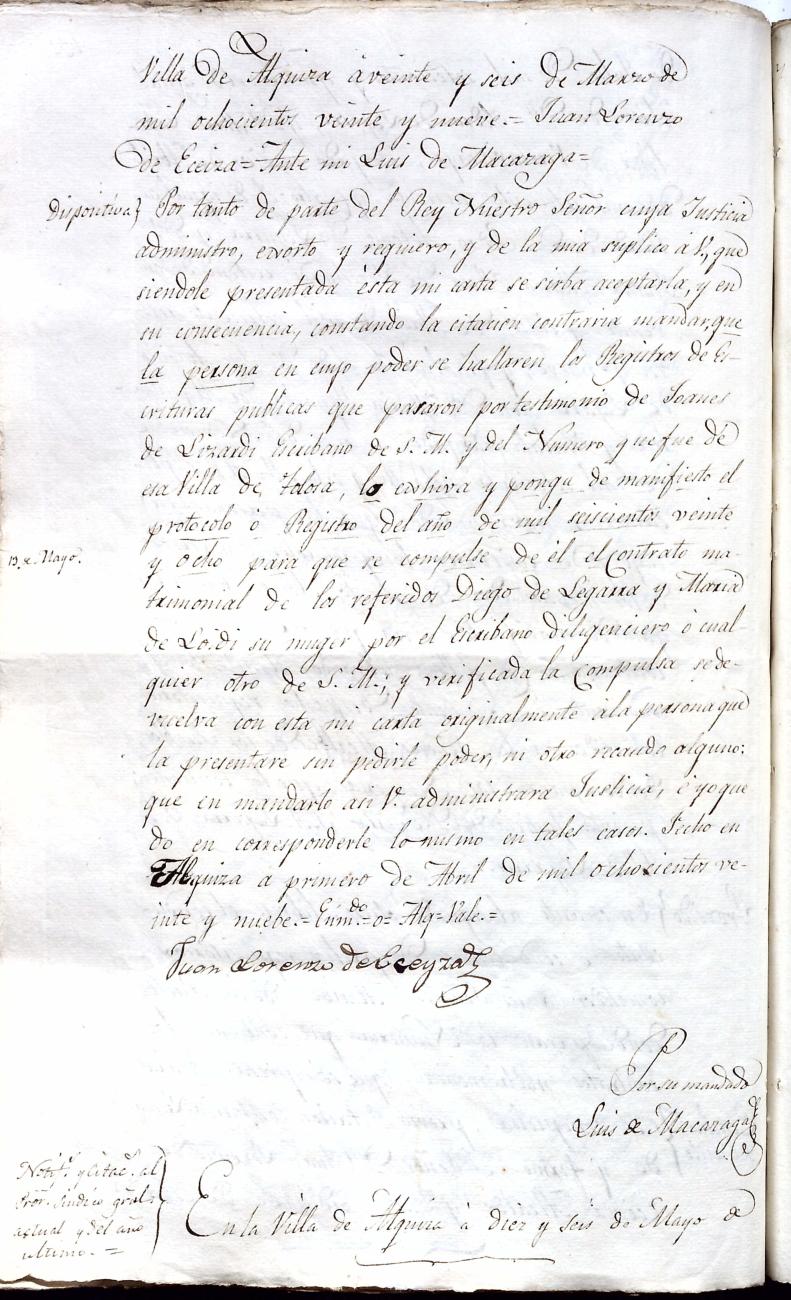 Villa de Alquiza à veinte y seis de Marzo de
mil ochocientos veinte y nueve.= Juan Lorenzo
de Eceiza=Ante mi Luis de Macazaga=
Dispositiva} Por tanto de parte del Rey Nuestro Señor cuya Justicia
administro, exorto y requiero, y de la mia suplico á V., que
siendole presentada ésta mi carta se sirba aceptarla, y en
su consecuencia, constando la citacion contraria mandar, que
la persona en cuyo poder se hallaren los Registros de Es-
crituras publicas que pasaron por testimonio de Joanes
de Lizardi Escribano de S. M. y del Numero que fue de
esa Villa de Tolosa, lo exhiva y ponga de manifiesto el
protocolo ó Registro del año de mil seiscientos veinte
13. de Mayo.
y ocho para que se compulse de él el Contrato ma-
trimonial de los referidos Diego de Legarra y Maria
de Loidi su muger por el Escribano diligenciero ó cual-
quier otro de S. M.; y verificada la compulsa se de-
vuelva con esta mi carta originalmente a la persona que
la presentare sin pedirle poder, ni otro recaudo alguno:
que en mandarlo asi V. administrara Justicia, é yo que
do en corresponderle lo mismo en tales casos. Fecho en
Alquiza a primero de Abril de mil ochocientos ve-
inte y nuebe.=Enm.do=o=Alq=Vale.=
Juan Lorenzo de Eceyza
Por su mandado
Luis de Macazaga
Notif.n y citac.n al
Pror. Sindico gral.
actual y del año
ultimo.=
En la Villa de Alquiza à diez y seis de Mayo de